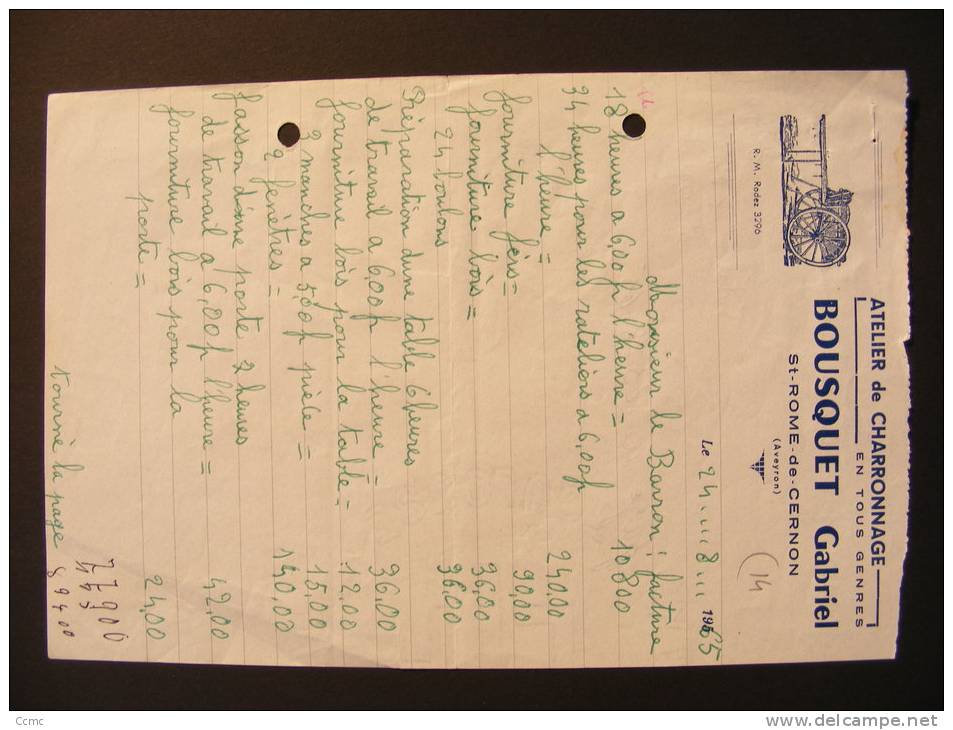 ATELIER de CHARRONNAGE
EN TOUS GENRES
BOUSQUET Gabriel
St-ROME-de-CERNON
(Aveyron)
R. M. Rodez 3296
(14
Le 24....8... 19565
Monsieur le Barron ; facture
12
18 heures a 6,00f l'heure = 10800
34 heures pour les rateliers a 6,00f
l'heure = 240.00
fourniture fers = 90,00
fourniture bois = 36,00
24 boulons 36.00
Préparation dune table 6 heures
de travail a 6,00f l'heure = 36,00
fourniture bois pour la table = 12,00
3 manches a 5,00f pièce = 15,00
2 fenètres = 140,00
fasson d'une porte 7 heures
de travail a 6,00f l'heure = 42,00
fourniture bois pour la
porte = 24,00
tourné la page
77900
89400
Ccmc
www.delcampe.net